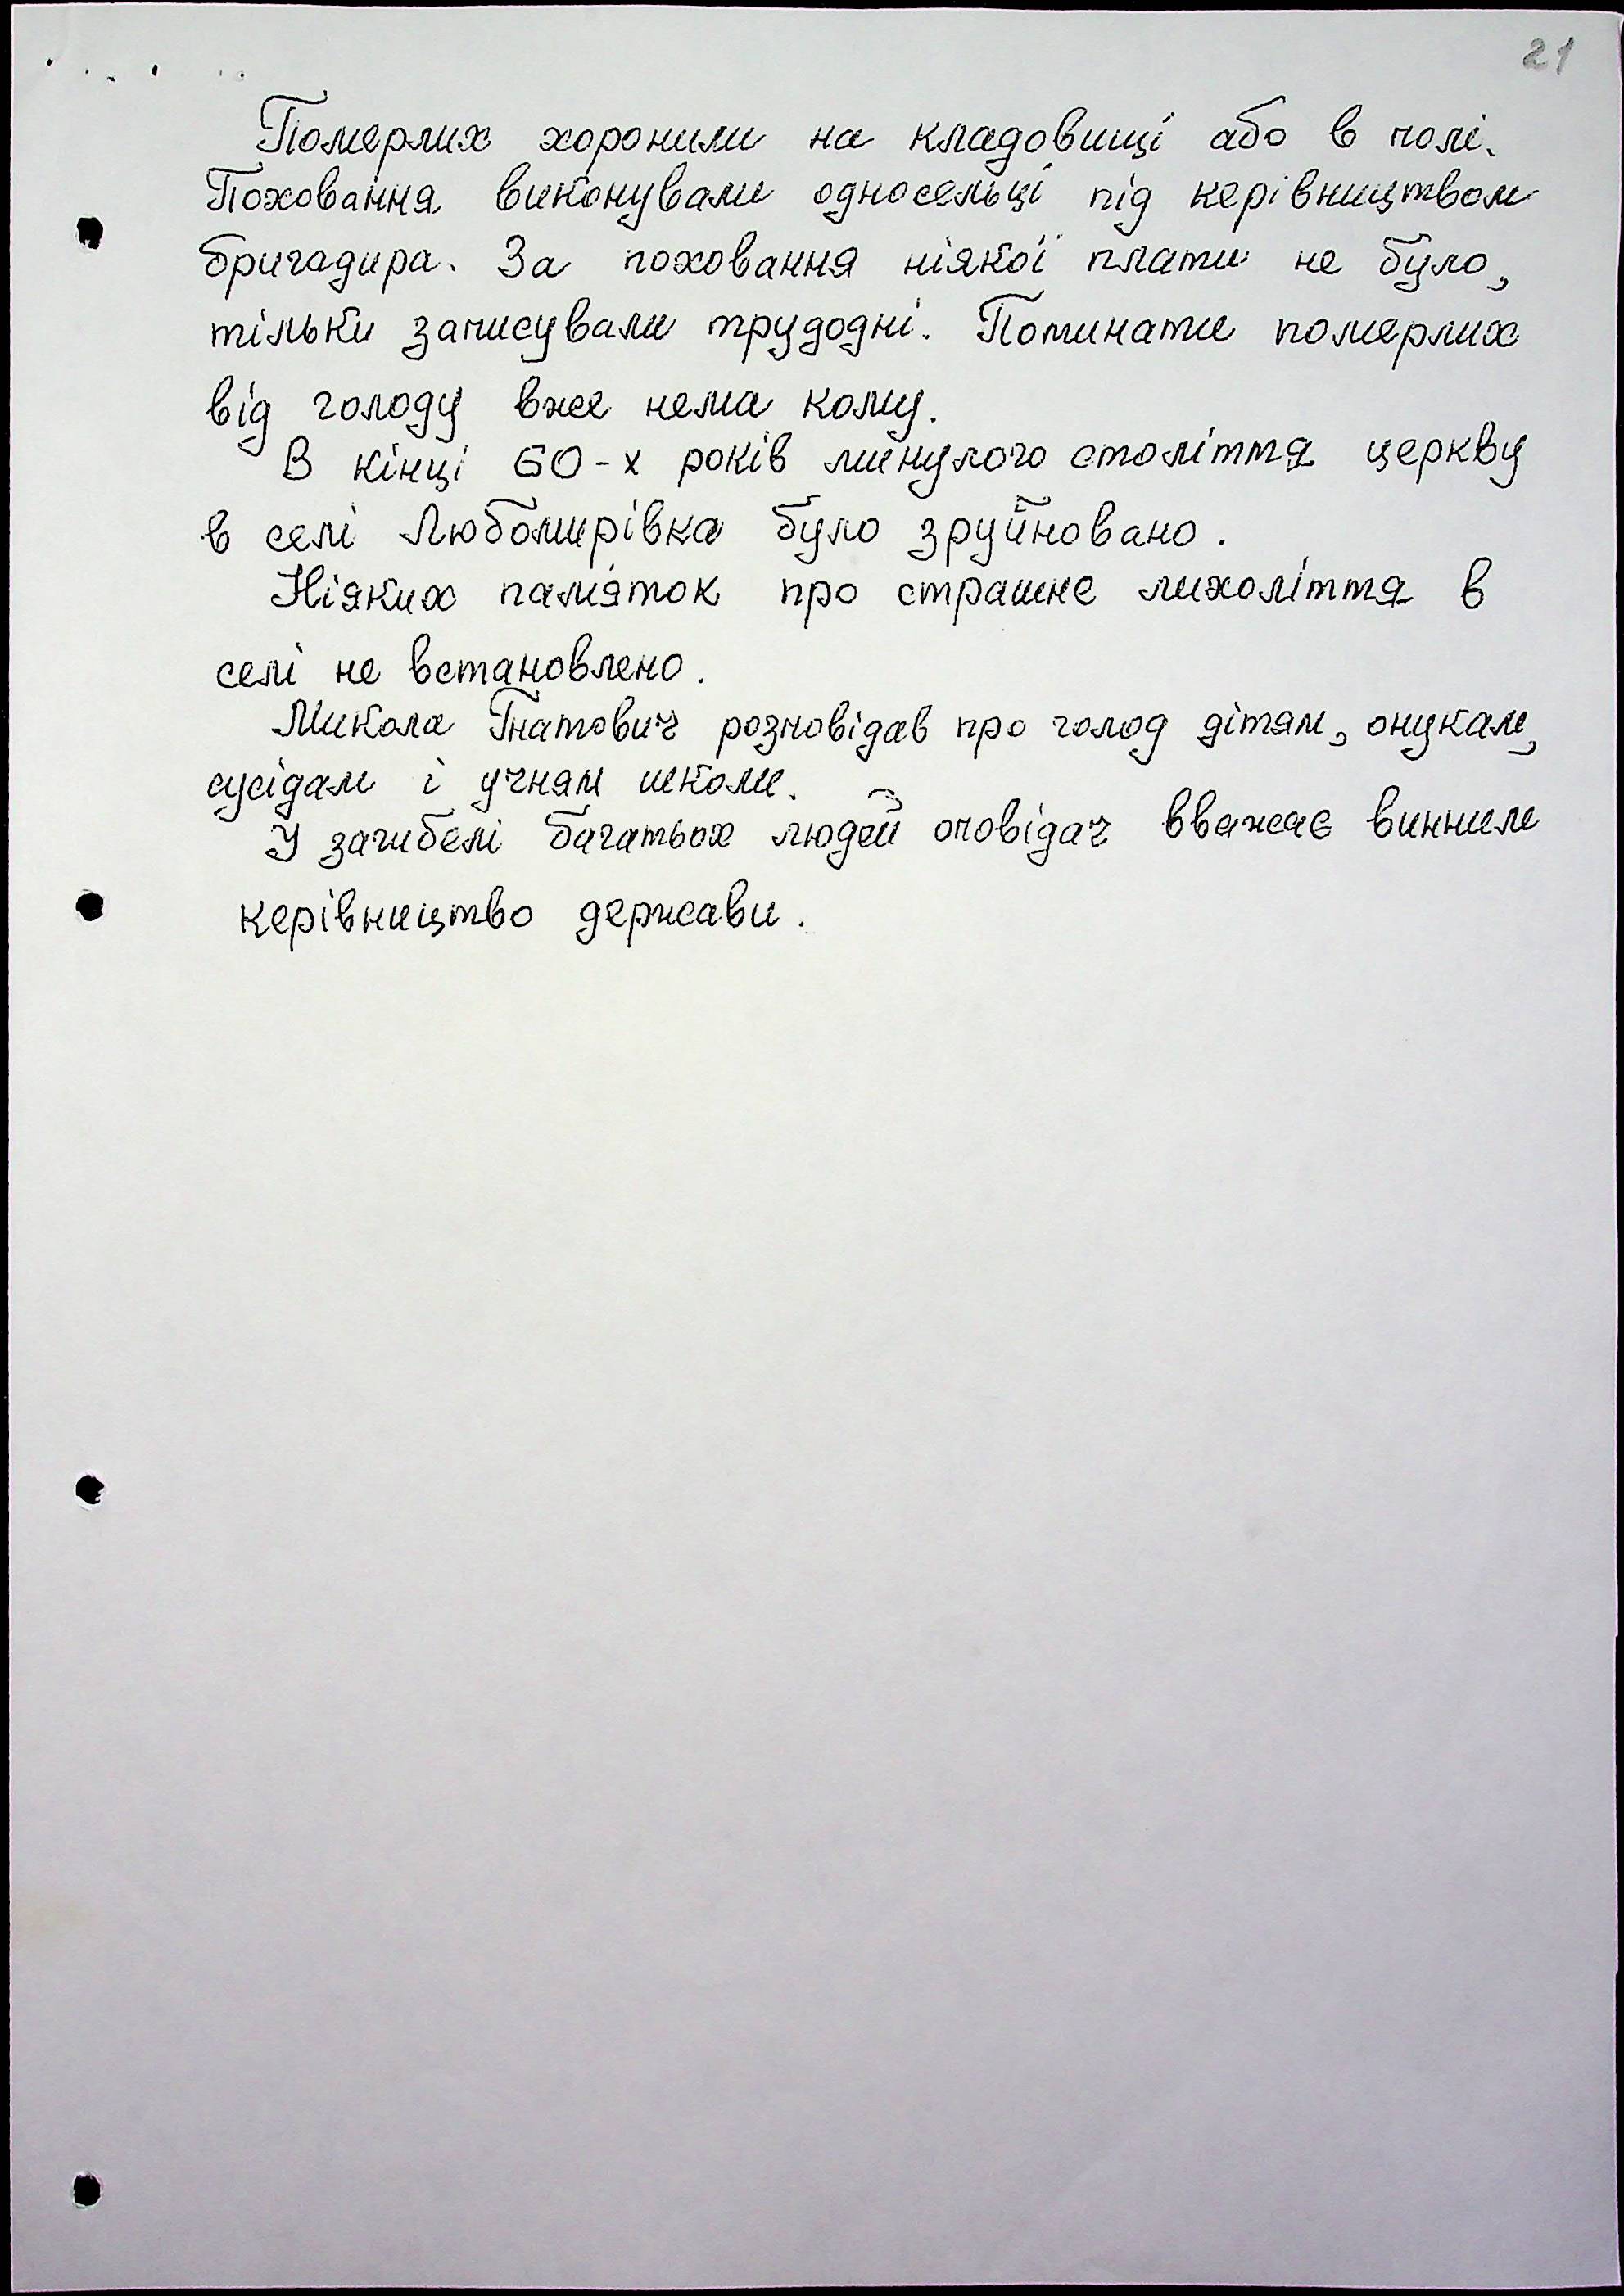 21
Померлих хоронили на кладовищі або в полі.
Поховання виконували односельці під керівництвом
бригадира. За поховання ніякої плати не було,
тільки записували трудодні. Поминати померлих
від голоду вже нема кому.
В кінці 60-х років минулого століття церкву
в селі Любомирівка було зруйновано.
Ніяких пам'яток про страшне лихоліття в
селі не встановлено.
Микола Гнатович розповідав про голод дітям, онукам,
сусідам і учням школи.
У загибелі багатьох людей оповідач вважає винним
керівництво держави.